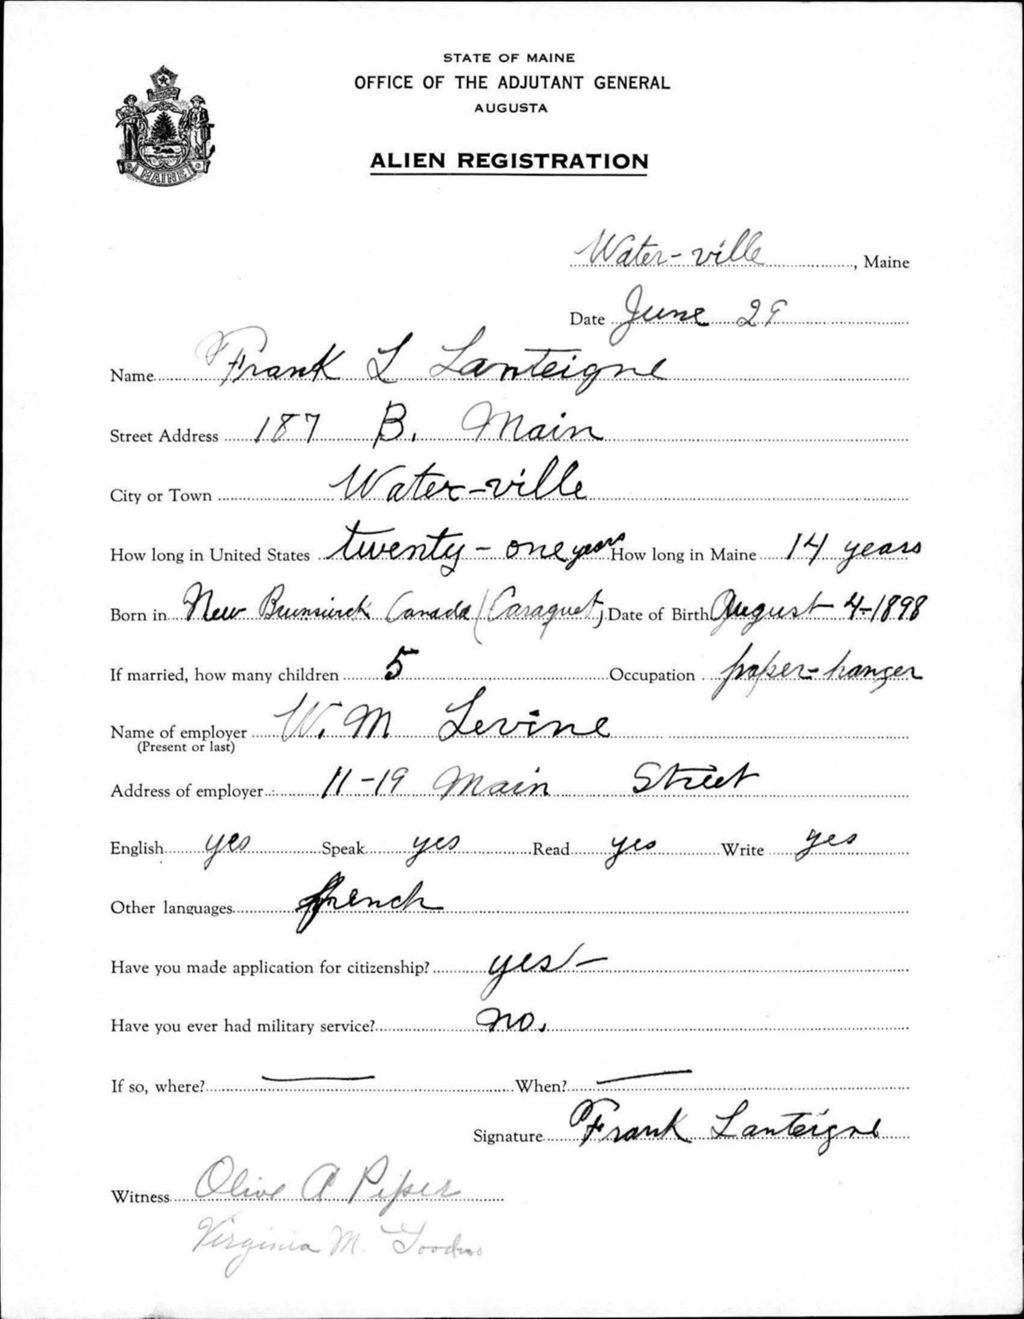 STATE OF MAINE
OFFICE OF THE ADJUTANT GENERAL
AUGUSTA
ALIEN REGISTRATION
MAINE
Water-ville, Maine
Date June 29
Name Frank L Lanteigne
Street Address 187 B. Main
City or Town Water-ville
How long in United States twenty-one years How long in Maine 14 years
Born in New Brunswick Canada (Caraquet) Date of Birth August 4-1898
If married, how many children 5 Occupation paper-hanger
Name of employer W. M Levine
(Present or last)
Address of employer 11-19 Main Street
English yes Speak yes Read yes Write yes
Other languages french
Have you made application for citizenship? yes -
Have you ever had military service? no.
If so, where? — When? —
Signature Frank Lanteigne
Witness Olive A Piper
Virginia M.